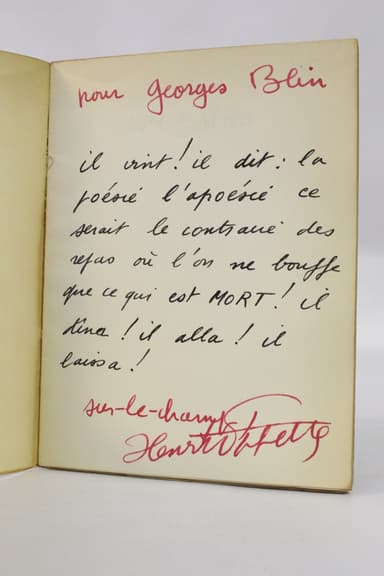 pour Georges Blin
il vint ! il dit : la
poésie l'apoésie ce
serait le contraire des
repas où l'on ne bouffe
que ce qui est MORT ! il
dîna ! il alla ! il
laissa !
sur-le-champ
Henri Pichette